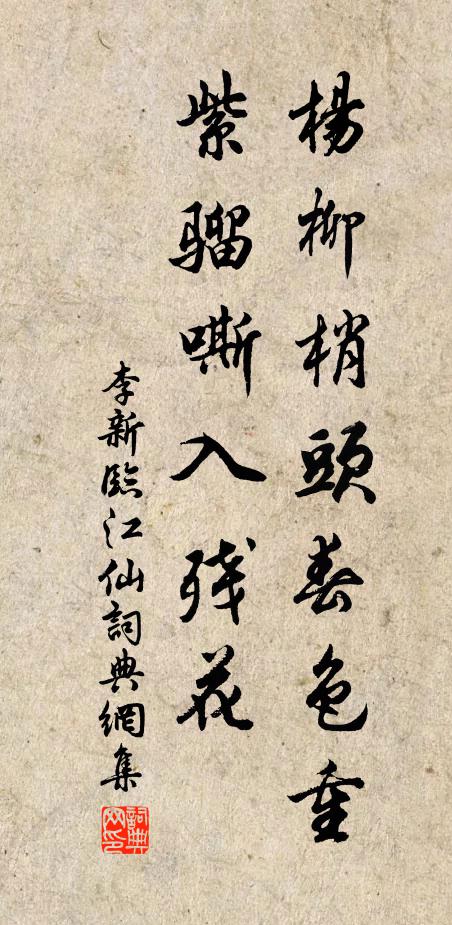 楊柳梢頭春色重
紫騮嘶入殘花
李新臨江仙詞典網集
詞典網印